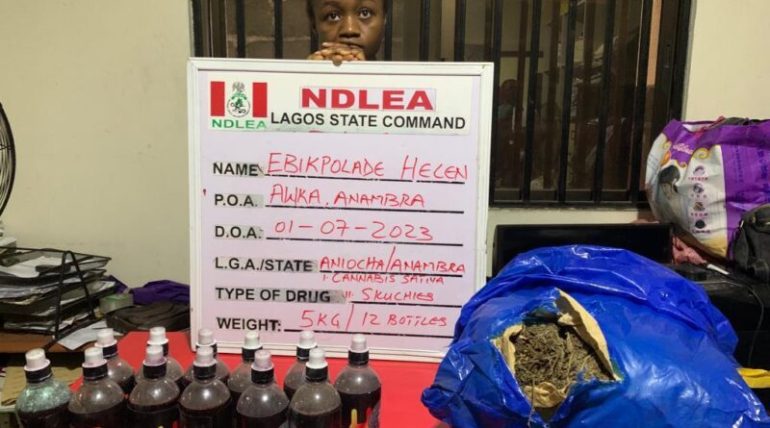 NDLEA
NDLEA
LAGOS STATE COMMAND
NAME EBIKPOLADE HELEN
P.O.A. AWKA, ANAMBRA
D.O.A: 01-07-2023
L.G.A./STATE ANIOCHA/ANAMBRA
TYPE OF DRUG i. CANNABIS SATIVA
ii. SKUCHIES
WEIGHT: 5KG/12 BOTTLES